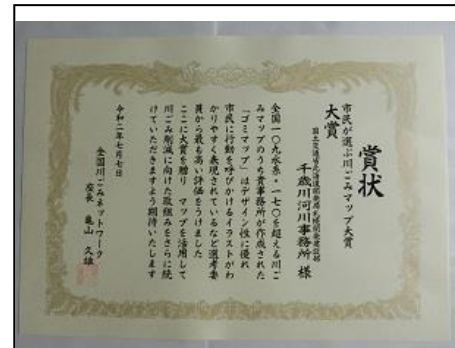 賞状
市民が選ぶ川ごみマップ大賞
大賞
国土交通省北海道開発局札幌開発建設部
千歳川河川事務所 様
全国一〇九水系・一七〇を超える川ご
みマップのうち貴事務所が作成された
「ゴミマップ」はデザイン性に優れ
市民に行動を呼びかけるイラストがわ
かりやすく表現されているなど選考委
員から最も高い評価をうけました
ここに大賞を贈り マップを活用して
川ごみ削減に向けた取組みをさらに続
けていただきますよう期待いたします
令和二年七月七日
全国川ごみネットワーク
座長 亀山 久雄